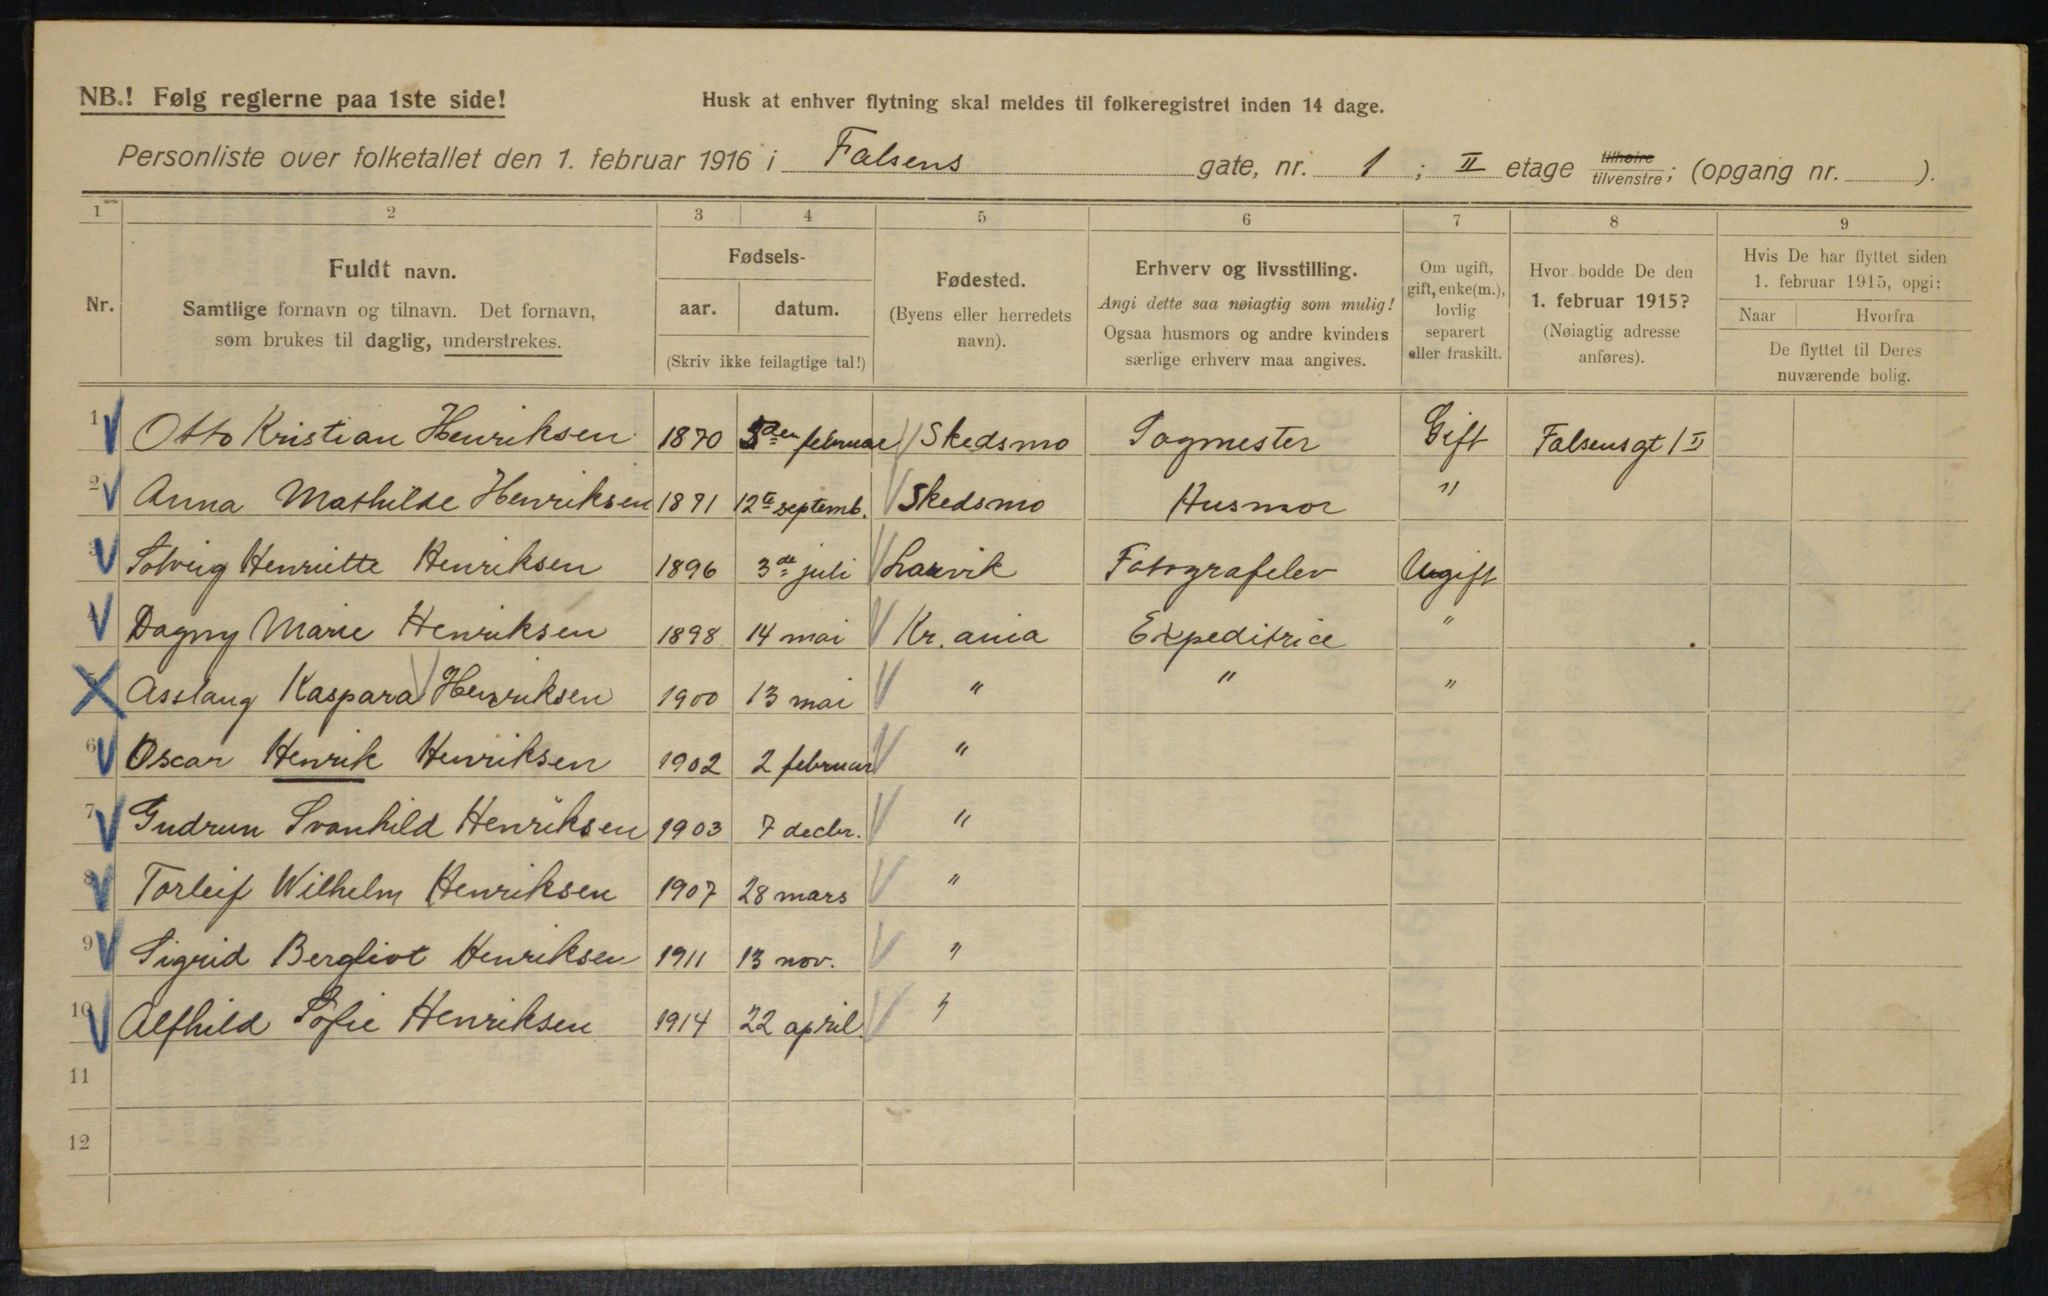 NB.! Følg reglerne paa 1ste side!
Husk at enhver flytning skal meldes til folkeregistret inden 14 dage.
Personliste over folketallet den 1. februar 1916 i Falsens gate, nr. 1 ; II etage tilhøire tilvenstre; (opgang nr. ).
1 2 3 4 5 6 7 8 9
Nr.
Fuldt navn.
Samtlige fornavn og tilnavn. Det fornavn,
som brukes til daglig, understrekes.
Fødsels-
aar. datum.
(Skriv ikke feilagtige tal!)
Fødested.
(Byens eller herredets
navn).
Erhverv og livsstilling.
Angi dette saa nøiagtig som mulig!
Ogsaa husmors og andre kvinders
særlige erhverv maa angives.
Om ugift,
gift, enke(m.),
lovlig
separert
eller fraskilt.
Hvor bodde De den
1. februar 1915?
(Nøiagtig adresse
anføres).
Hvis De har flyttet siden
1. februar 1915, opgi:
Naar Hvorfra
De flyttet til Deres
nuværende bolig.
1 Otto Kristian Henriksen 1870 5den februar Skedsmo Sagmester Gift Falsensgt 1 II
2 Anna Mathilde Henriksen 1871 12te septemb. Skedsmo Husmor "
3 Solveig Henriette Henriksen 1896 3de juli Larvik Fotografelev Ugift
4 Dagny Marie Henriksen 1898 14 mai Kr.ania Expeditrice "
Asslaug Kaspara Henriksen 1900 13 mai " " "
6 Oscar Henrik Henriksen 1902 2 februar "
7 Gudrun Svanhild Henriksen 1903 7 decbr. "
8 Torleif Wilhelm Henriksen 1907 28 mars "
9 Sigrid Bergliot Henriksen 1911 13 nov. "
10 Alfhild Sofie Henriksen 1914 22 april. "
11
12